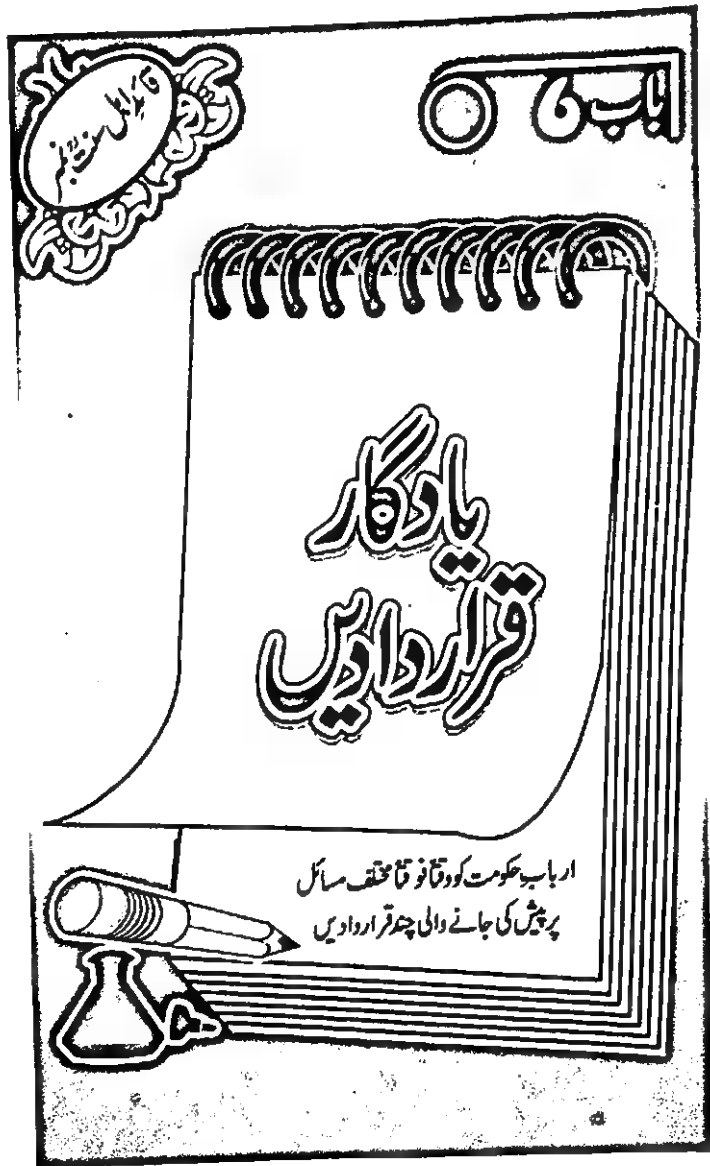 باب 6
قائدِ اہلِ سنت نمبر
یادگار
قراردادیں
اربابِ حکومت کو وقتاً فوقتاً مختلف مسائل
پر پیش کی جانے والی چند قراردادیں